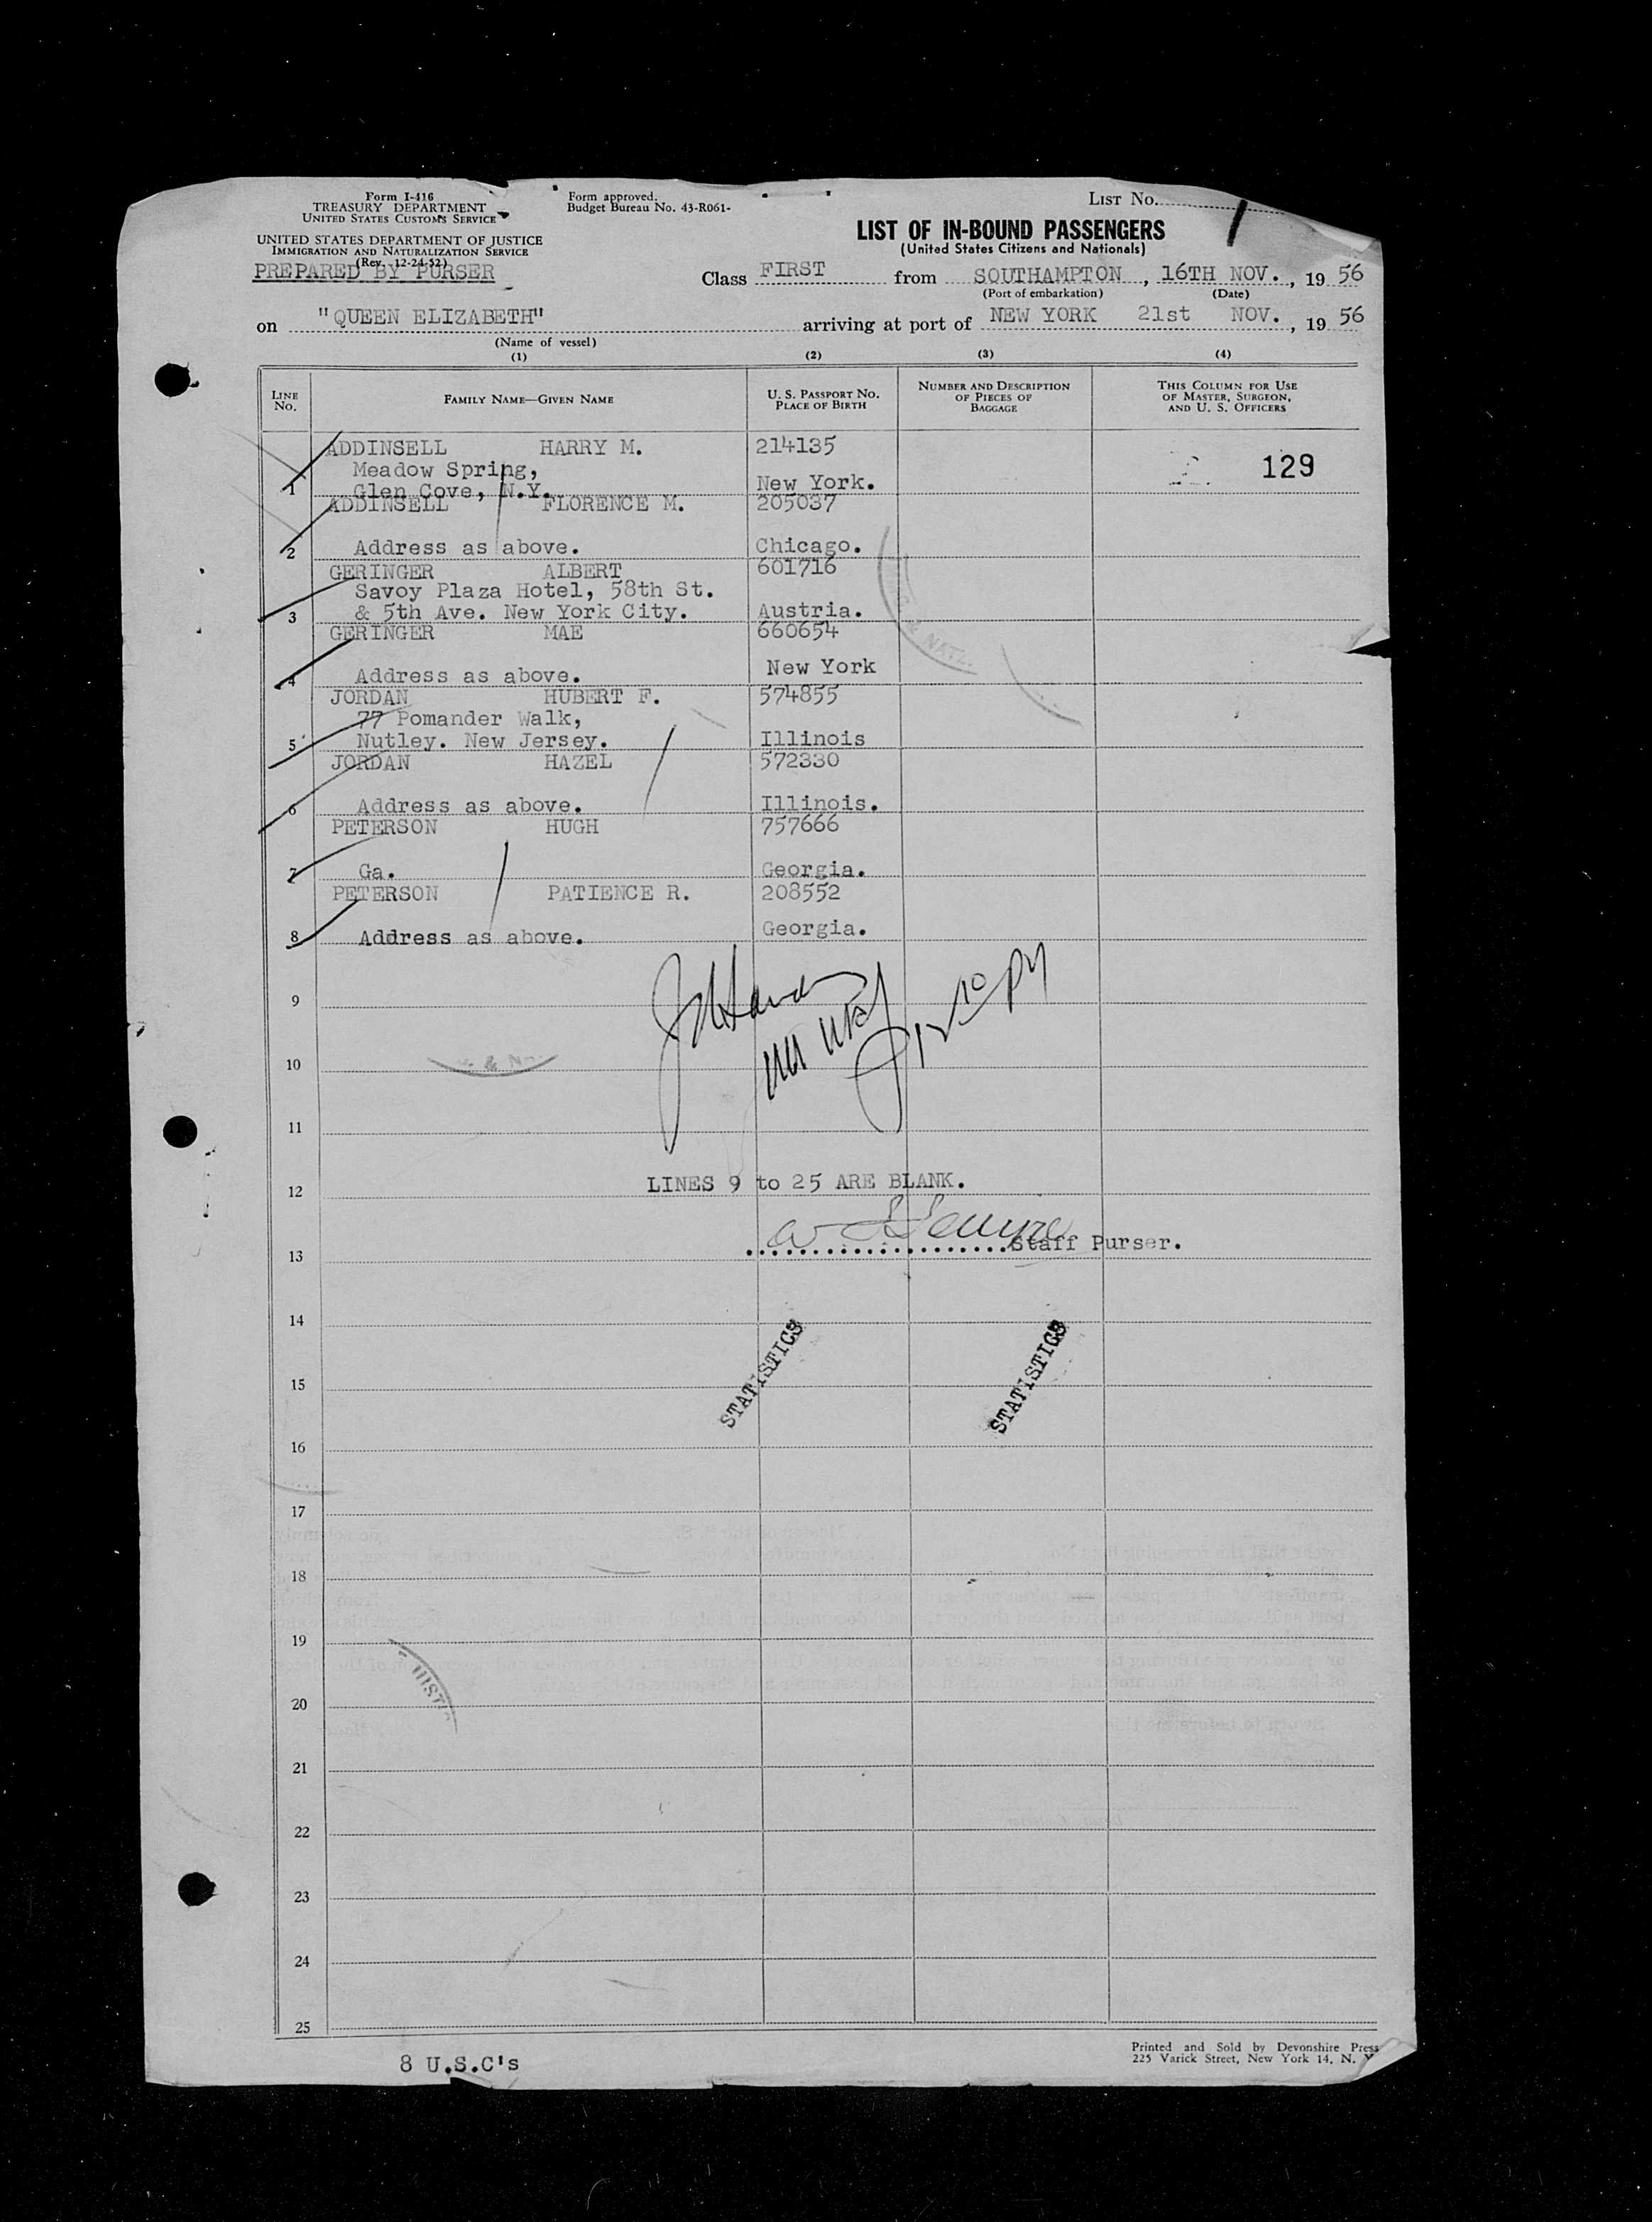 Form I-416
TREASURY DEPARTMENT
UNITED STATES CUSTOMS SERVICE
UNITED STATES DEPARTMENT OF JUSTICE
IMMIGRATION AND NATURALIZATION SERVICE
(Rev. 12-24-52)
PREPARED BY PURSER
Form approved.
Budget Bureau No. 43-R061-
LIST NO. 1
LIST OF IN-BOUND PASSENGERS
(United States Citizens and Nationals)
Class FIRST from SOUTHAMPTON, 16TH NOV., 19 56
(Port of embarkation) (Date)
on "QUEEN ELIZABETH" arriving at port of NEW YORK 21st NOV., 19 56
(Name of vessel)
(1) (2) (3) (4)
LINE NO. FAMILY NAME—GIVEN NAME U. S. PASSPORT NO. PLACE OF BIRTH NUMBER AND DESCRIPTION OF PIECES OF BAGGAGE THIS COLUMN FOR USE OF MASTER, SURGEON, AND U. S. OFFICERS
ADDINSELL HARRY M. 214135
129
Meadow Spring,
1 Glen Cove, N.Y. New York.
ADDINSELL FLORENCE M. 205037
2 Address as above. Chicago.
GERINGER ALBERT 601716
Savoy Plaza Hotel, 58th St.
3 & 5th Ave. New York City. Austria.
GERINGER MAE 660654
4 Address as above. New York
JORDAN HUBERT F. 574855
77 Pomander Walk,
5 Nutley. New Jersey. Illinois
JORDAN HAZEL 572330
6 Address as above. Illinois.
PETERSON HUGH 757666
7 Ga. Georgia.
PETERSON PATIENCE R. 208552
8 Address as above. Georgia.
9
10
11
LINES 9 to 25 ARE BLANK.
12
Staff Purser.
13
14
STATISTICS STATISTICS
15
16
17
18
19
20
21
22
23
24
25
8 U.S.C's
Printed and Sold by Devonshire Press
225 Varick Street, New York 14, N. Y